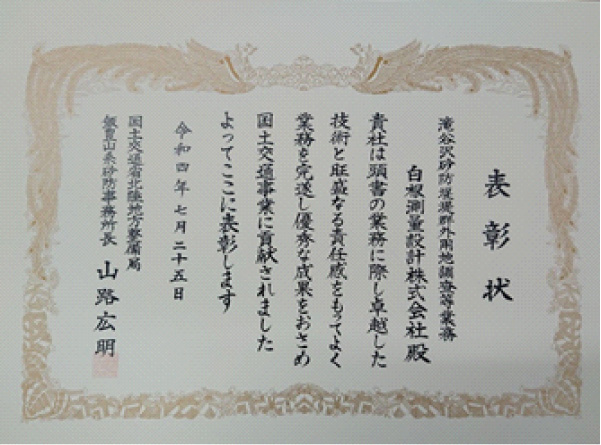 表彰状
滝谷沢砂防堰堤群外用地調査等業務
白根測量設計株式会社殿
貴社は頭書の業務に際し卓越した
技術と旺盛なる責任感をもってよく
業務を完遂し優秀な成果をおさめ
国土交通事業に貢献されました
よってここに表彰します
令和四年七月二十五日
国土交通省北陸地方整備局
飯豊山系砂防事務所長
山路広明